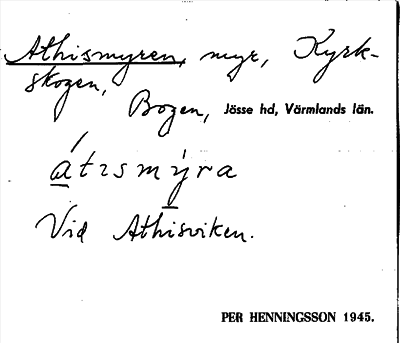 Athismyren, myr, Kyrk-
skogen,
Bogen, Jösse hd, Värmlands län.
átɪsmýra
Vid Athisviken.
PER HENNINGSSON 1945.